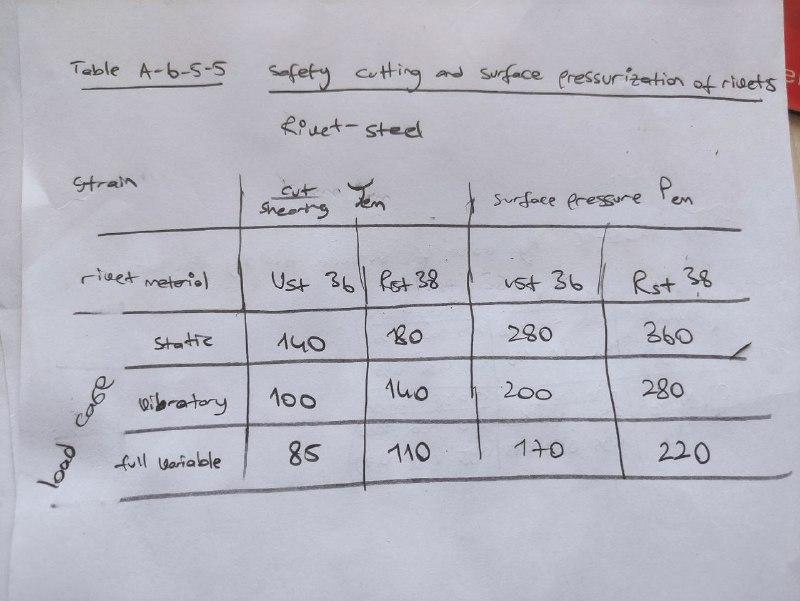 Table A-6-5-5 Safety cutting and surface pressurization of rivets
Rivet-steel
Strain cut shearing τem surface pressure Pem
rivet meterial Ust 36 Rst 38 ust 36 Rst 38
static 140 180 280 360
vibratory 100 140 200 280
full variable 85 110 170 220
load case